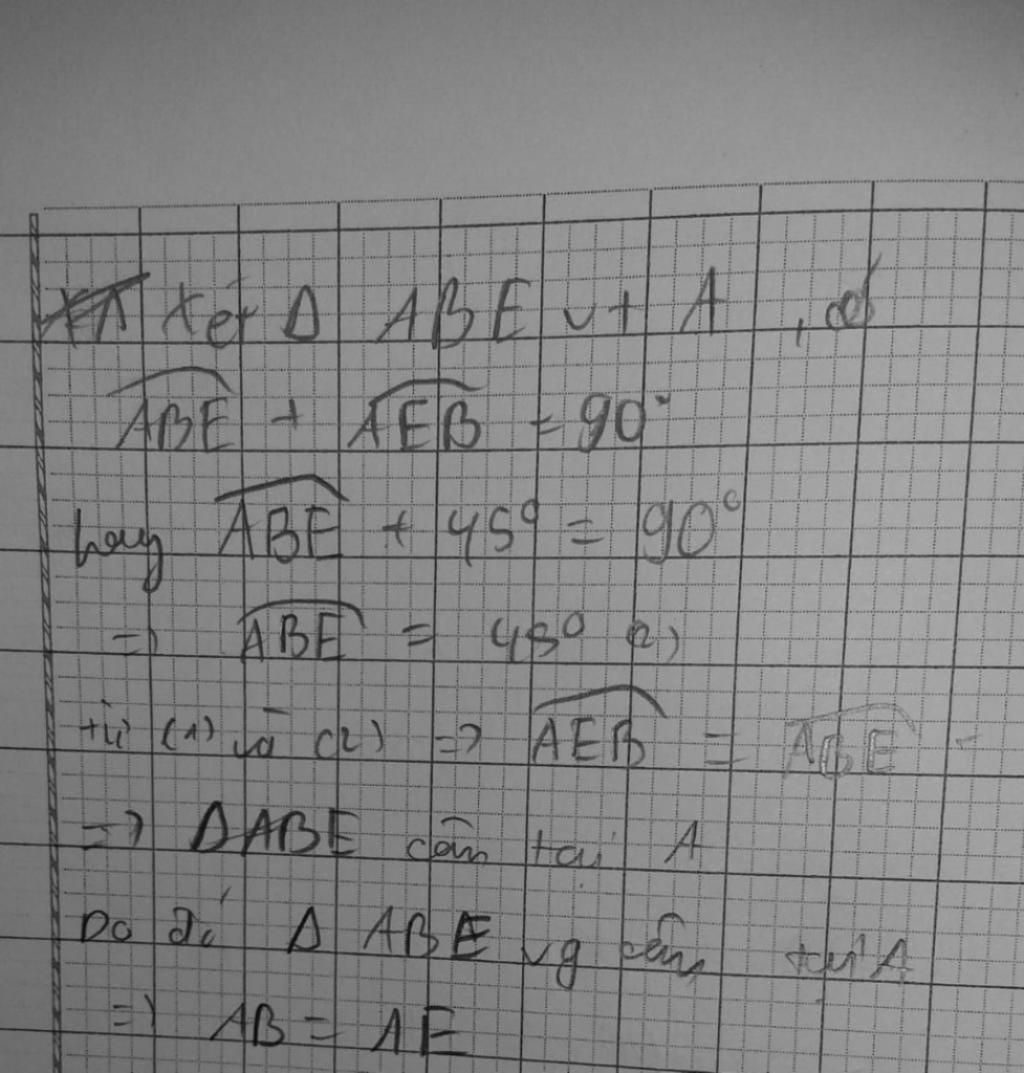 Xét Δ ABE vt A , có
ABE + AEB = 90°
hay ABE + 45° = 90°
=> ABE = 45° (2)
từ (1) và (2) => AEB = ABE
=> ΔABE cân tại A
Do đó Δ ABE vg cân tại A
=> AB = AE